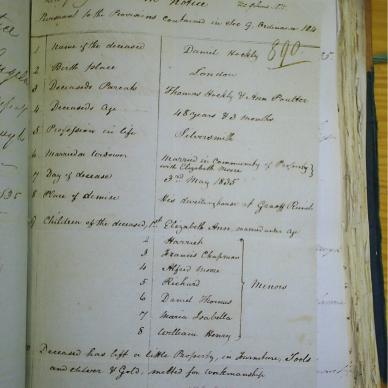 Notice
Pursuant to the Provisions contained in Sec 9. Ordinance 104
1 Name of the deceased Daniel Hockly 890
2 Birth Place London
3 Deceaseds Parents Thomas Hockly & Ann Poulter
4 Deceaseds Age 48 years & 3 months
5 Profession in life Silversmith
6 Married or widower Married in Community of Property
with Elizabeth Moore
7 Day of decease 3rd May 1835
8 Place of demise His dwelling house at Graaff Reinet
9 Children of the deceased, 1st Elizabeth Ann, under age
2 Harriet
3 Francis Chapman
4 Alfred Moore
5 Richard
Minors
6 Daniel Thomas
7 Maria Isabella
8 William Henry
Deceased has left a little Property, in Furniture, Tools
and Silver & Gold, melted for workmanship